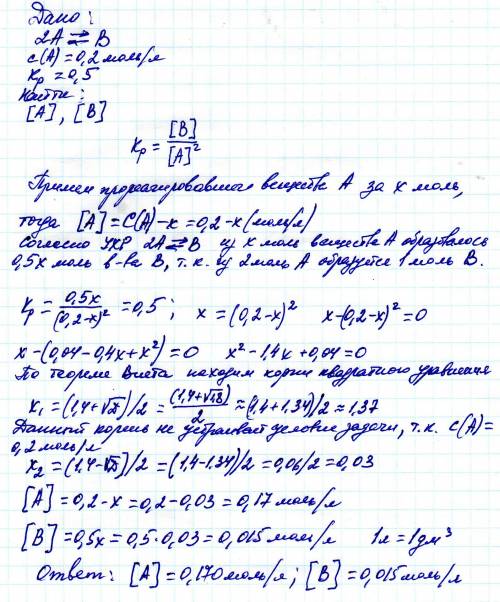 Дано:
2A ⇄ B
c(A) = 0,2 моль/л
Kр = 0,5
Найти:
[A], [B]
Kр = [B] / [A]²
Примем прореагировавшего вещества A за x моль,
тогда [A] = C(A) - x = 0,2 - x (моль/л)
Согласно УХР 2A ⇄ B из x моль вещества A образовалось
0,5x моль в-ва B, т.к. из 2 моль A образуется 1 моль B.
Kр = 0,5x / (0,2-x)² = 0,5; x = (0,2-x)² x-(0,2-x)² = 0
x-(0,04-0,4x+x²) = 0 x²-1,4x+0,04 = 0
По теореме Виета находим корни квадратного уравнения
x₁ = (1,4+√D)/2 = (1,4+√1,8)/2 ≈ (1,4+1,34)/2 ≈ 1,37
Данный корень не устраивает условие задачи, т.к. c(A)=
0,2 моль/л
x₂ = (1,4-√D)/2 = (1,4-1,34)/2 = 0,06/2 = 0,03
[A] = 0,2-x = 0,2-0,03 = 0,17 моль/л
[B] = 0,5x = 0,5·0,03 = 0,015 моль/л 1л = 1дм³
Ответ: [A] = 0,170 моль/л; [B] = 0,015 моль/л